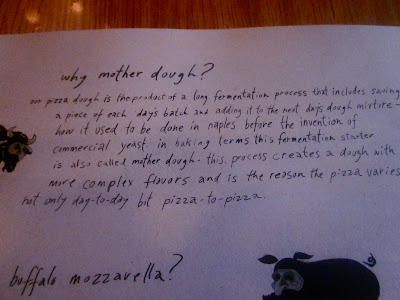 why mother dough?
our pizza dough is the product of a long fermentation process that includes saving
a piece of each day's batch and adding it to the next day's dough mixture -
how it used to be done in naples before the invention of
commercial yeast. in baking terms this fermentation starter
is also called mother dough. this process creates a dough with
more complex flavors and is the reason the pizza varies
not only day-to-day bit pizza-to-pizza.
buffalo mozzarella?